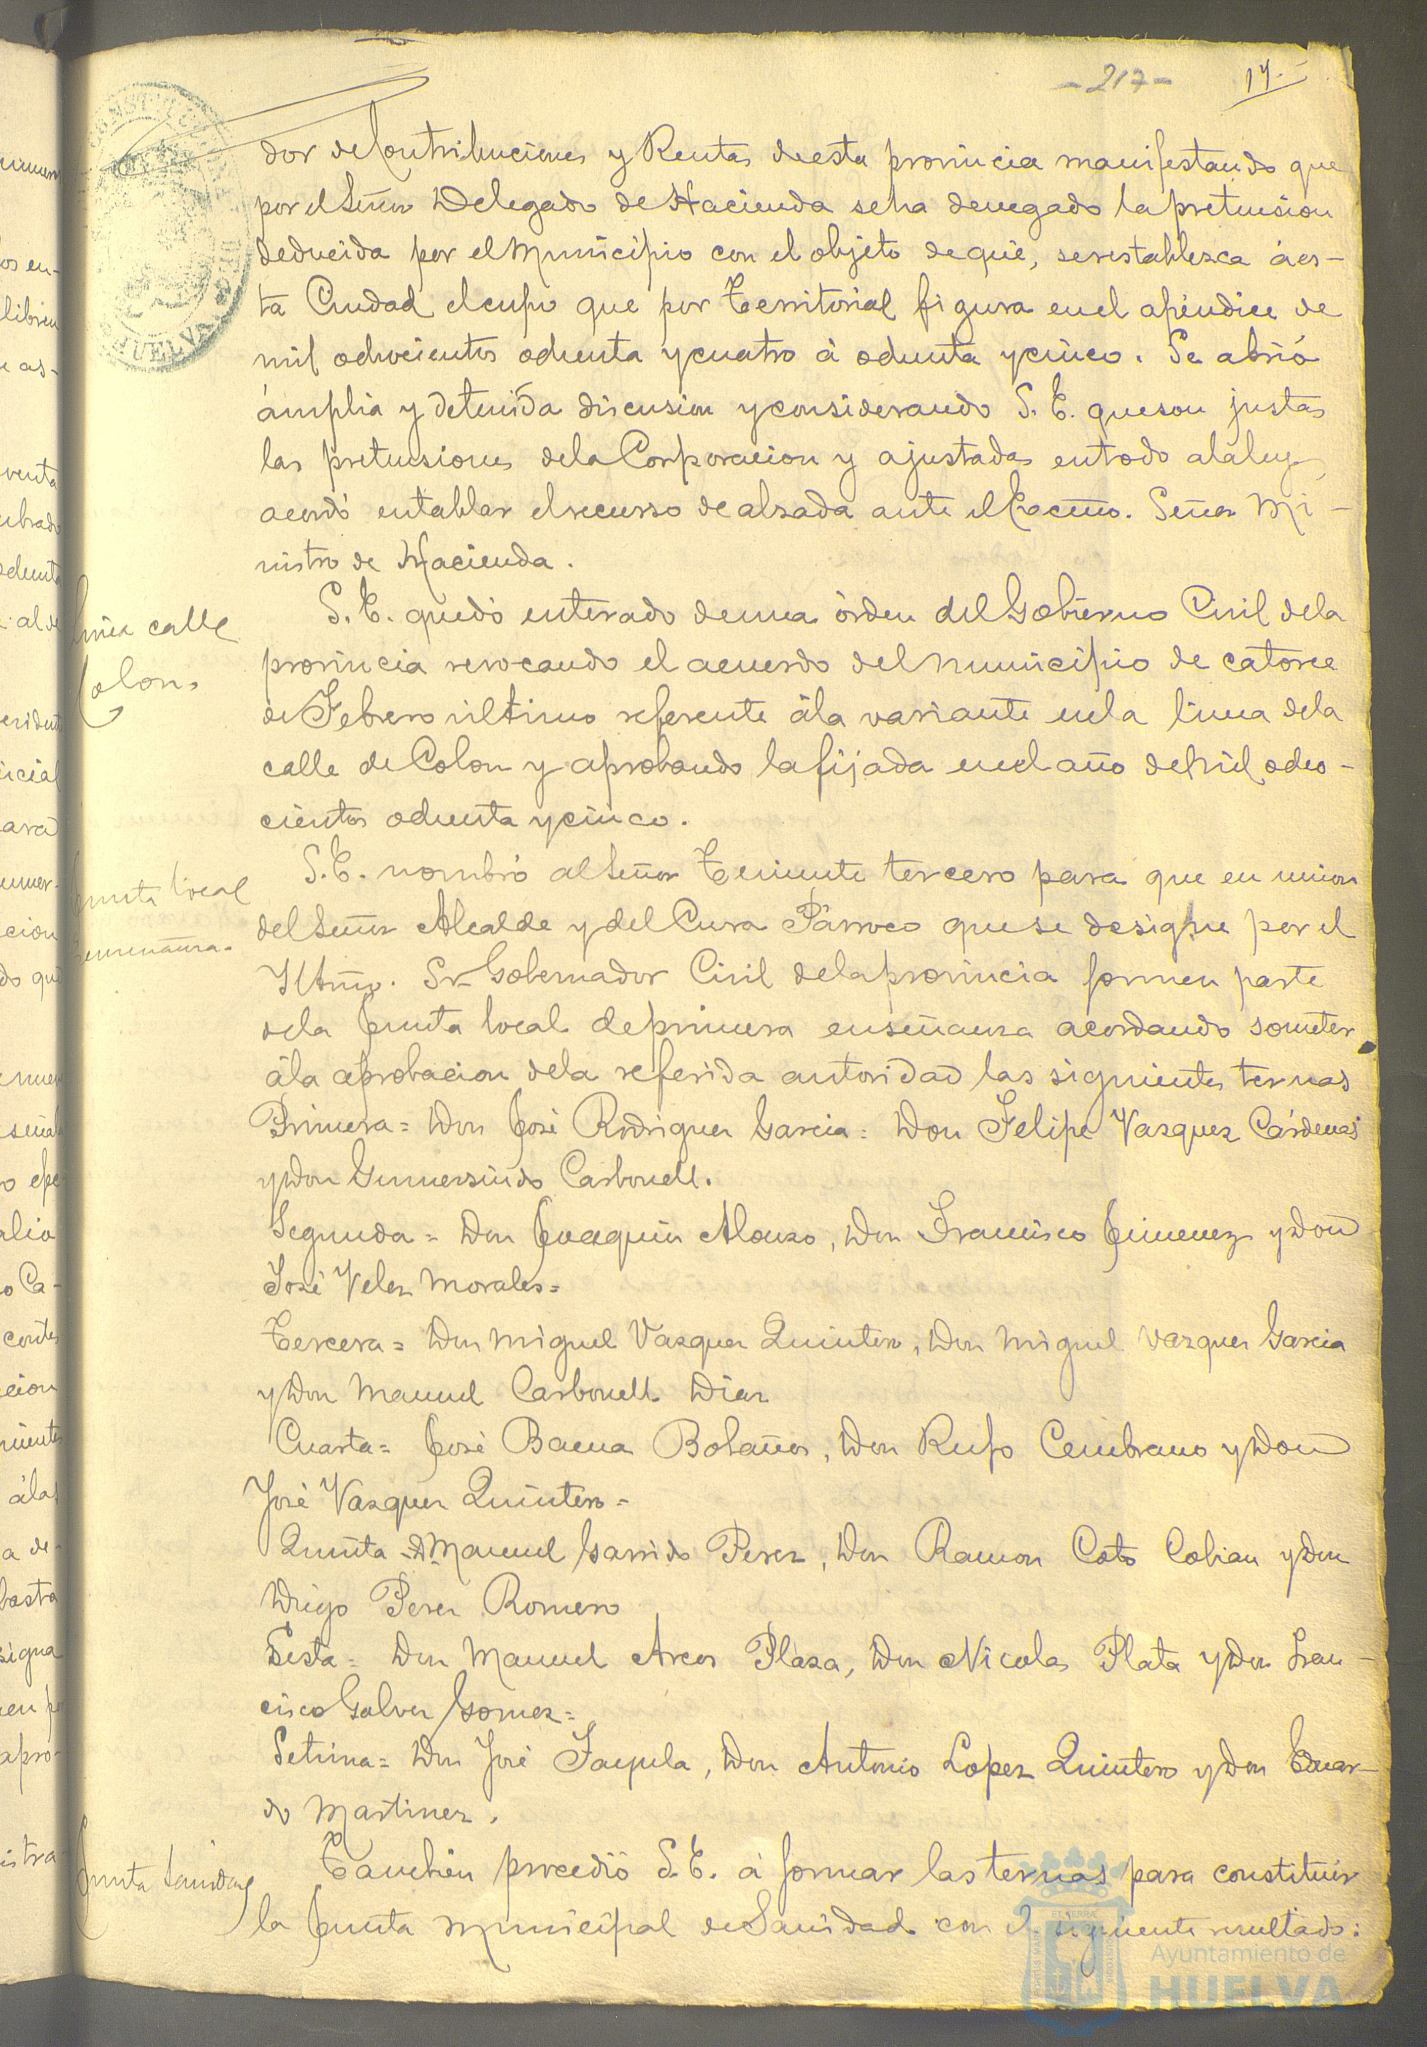 - 217 -
17.
dor de Contribuciones y Rentas de esta provincia manifestando que
por el Señor Delegado de Hacienda se ha denegado la pretension
deducida por el Municipio con el objeto de que, se restablezca á es-
ta Ciudad el cupo que por Territorial figura en el apéndice de
mil ochocientos ochenta y cuatro á ochenta y cinco. Se abrió
ámplia y detenida discusion y considerando S. E. que son justas
las pretensiones de la Corporacion y ajustadas en todo a la ley,
acordó entablar el recurso de alzada ante el Excmo. Señor Mi-
nistro de Hacienda.
linea calle
Colon,
S. E. quedó enterado de una órden del Gobierno Civil de la
provincia revocando el acuerdo del Municipio de catorce
de Febrero último referente á la variante en la linea de la
calle de Colon y aprobando la fijada en el año de mil ocho-
cientos ochenta y cinco.
Junta local
enseñanza.
S. E. nombró al Señor Teniente tercero para que en union
del Señor Alcalde y del Cura Párroco que se designe por el
Iltmo. Sr Gobernador Civil de la provincia formen parte
de la Junta local de primera enseñanza acordando someter
á la aprobacion de la referida autoridad las siguientes ternas
Primera = Don José Rodriguez Garcia = Don Felipe Vazquez Cárdenas
y Don Gumersindo Carbonell.
Segunda = Don Joaquin Alonzo, Don Francisco Jimenez y Don
José Velez Morales =
Tercera = Don Miguel Vazquez Quintero, Don Miguel Vazquez Garcia
y Don Manuel Carbonell Diaz
Cuarta = José Baena Bolaños, Don Rufo Cembrano y Don
José Vazquez Quintero =
Quinta = D. Manuel Garrido Perez, Don Ramon Coto Cobian y Don
Diego Perez Romero
Sesta = Don Manuel Arcos Plaza, Don Nicolas Plata y Don Fran-
cisco Galvez Gomez =
Setima = Don José Fayula, Don Antonio Lopez Quintero y Don Eduar-
do Martinez.
Junta Sanidad
Tambien procedió S. E. á formar las ternas para constituir
la Junta Municipal de Sanidad con el siguiente resultado:
Ayuntamiento de
HUELVA